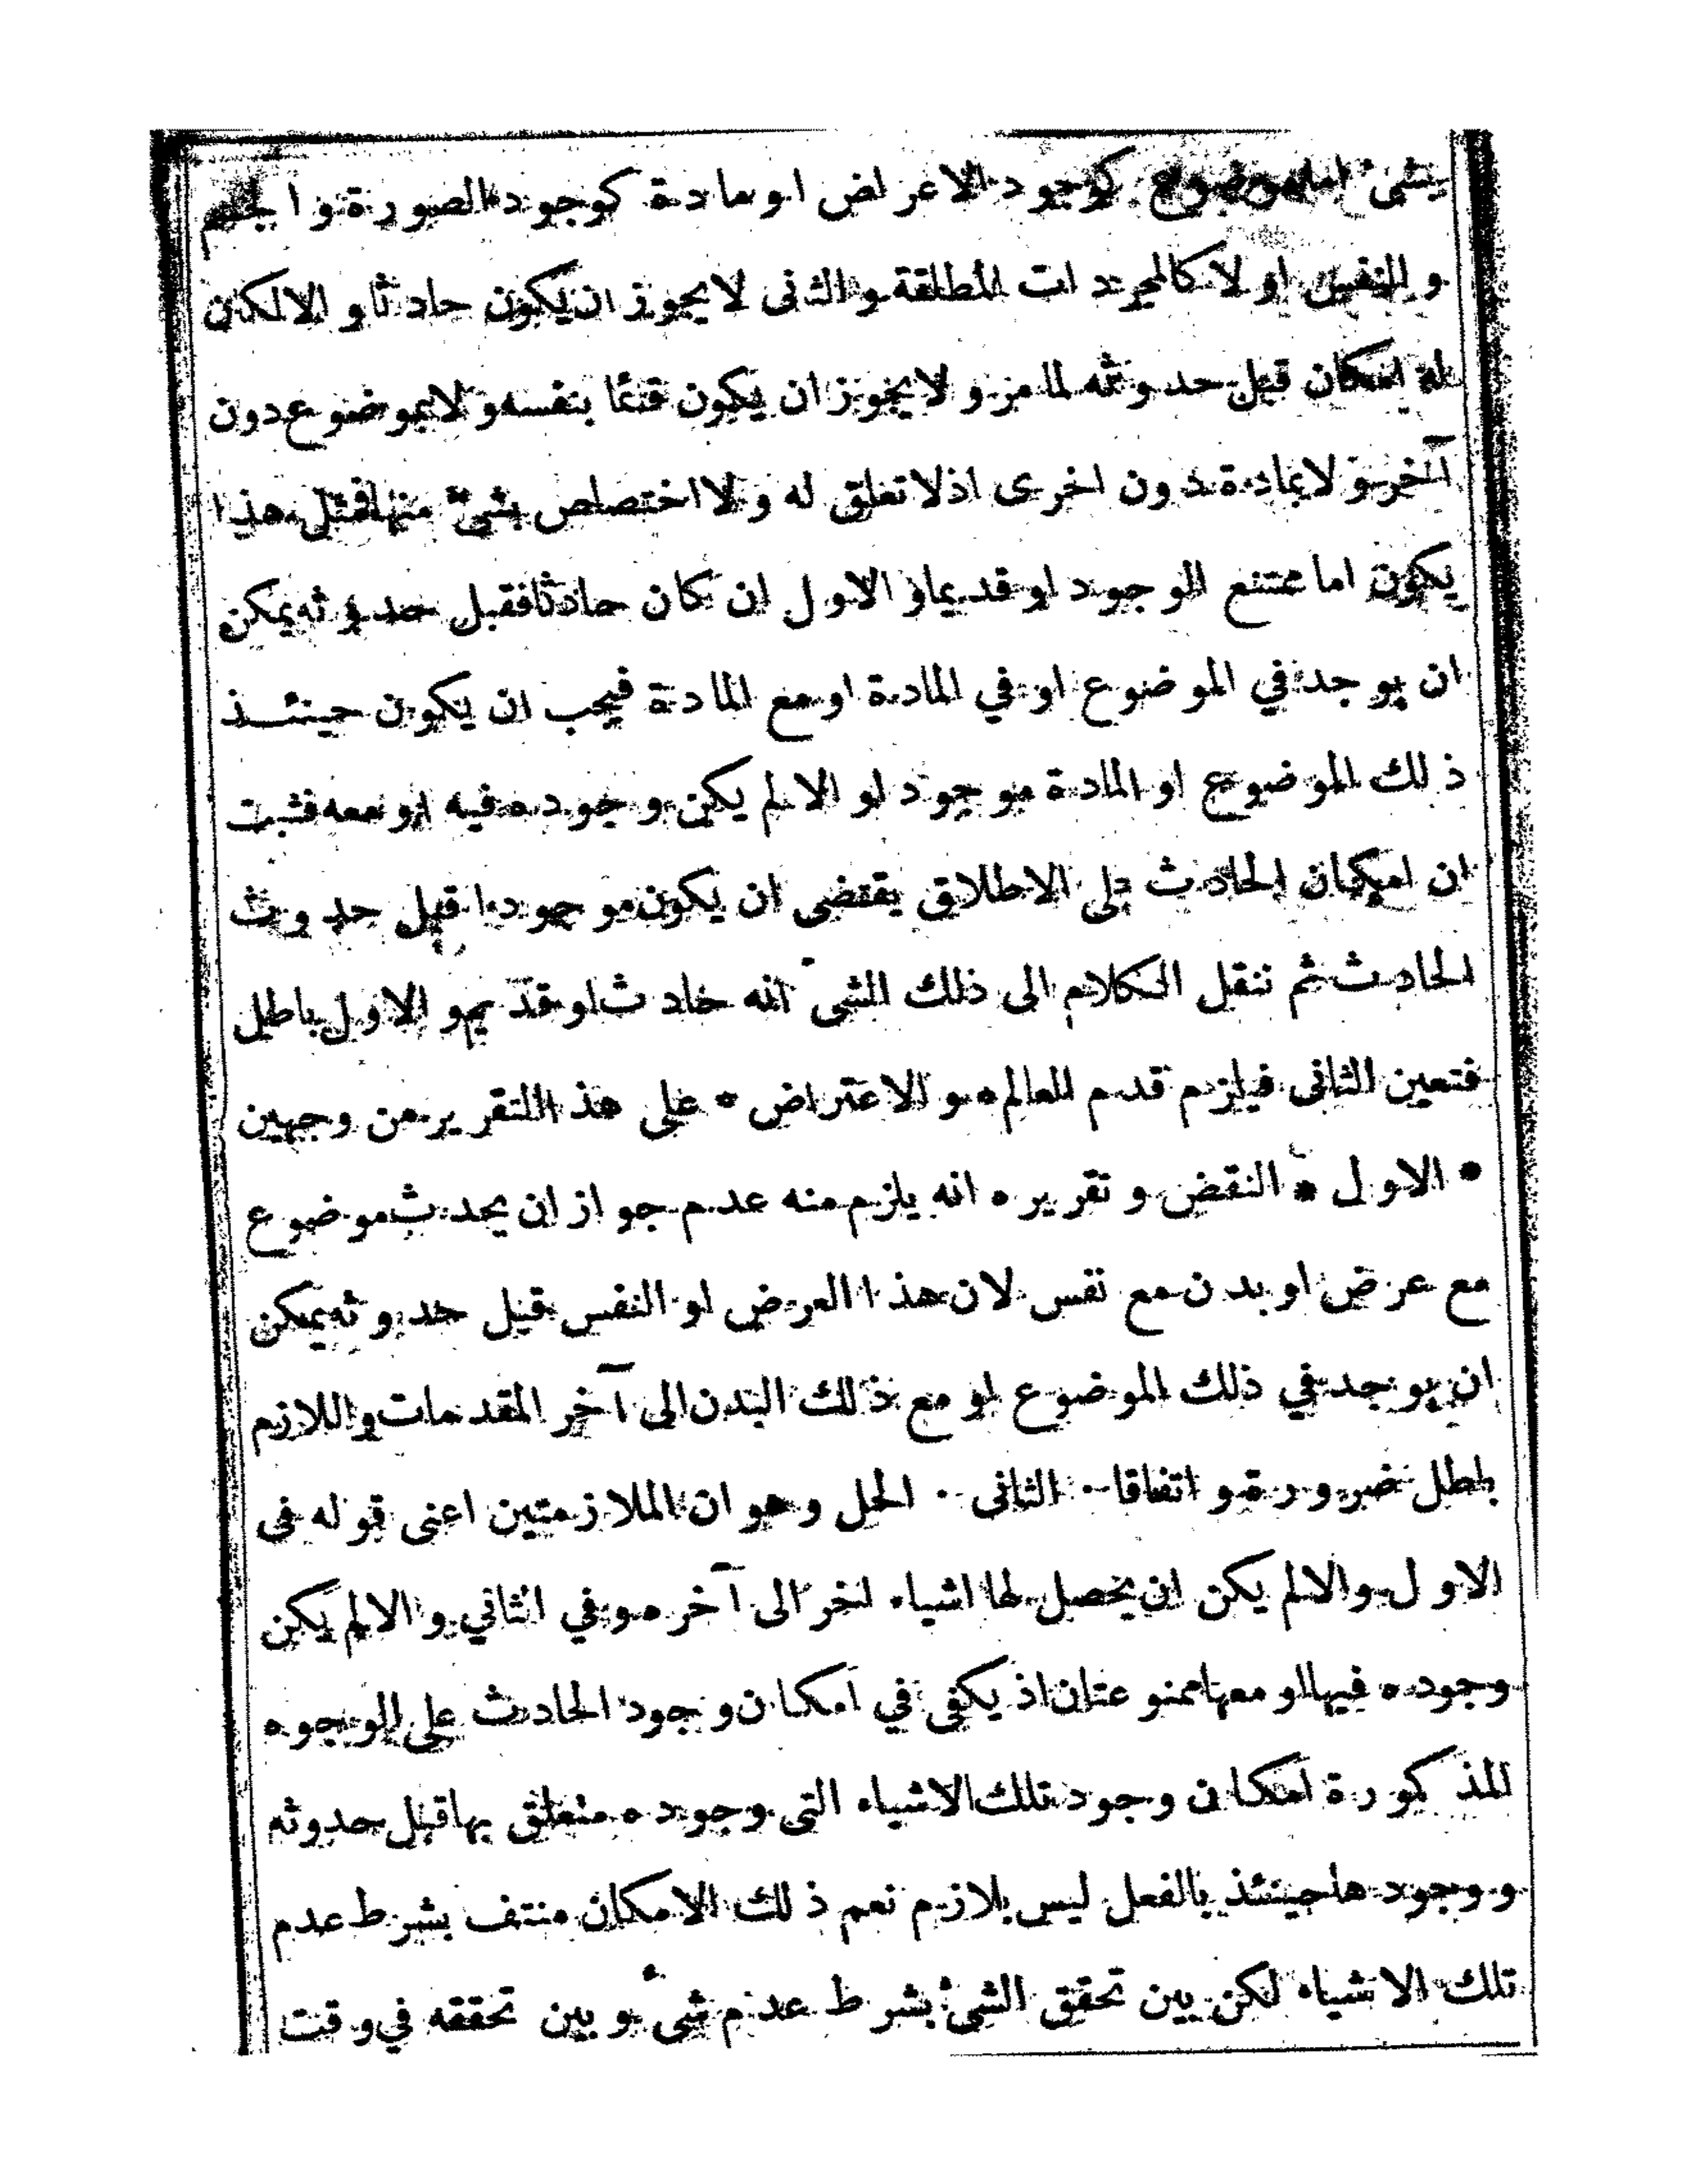 بشئ اما موضوع كوجود الاعراض او مادة كوجود الصورة والجسم
والنفس او لا كالمجردات المطلقة والثانى لا يجوز ان يكون حادثا والا لكان
له امكان قبل حدوثه لما مر ولا يجوز ان يكون قائما بنفسه ولا بموضوع دون
آخر ولا بمادة دون اخرى اذ لا تعلق له ولا اختصاص بشئ منها فمثل هذا
يكون اما ممتنع الوجود او قديما والاول ان كان حادثا فقبل حدوثه يمكن
ان يوجد في الموضوع او في المادة او مع المادة فيجب ان يكون حينئذ
ذلك الموضوع او المادة موجودا والا لم يكن وجوده فيه او معه فثبت
ان امكان الحادث على الاطلاق يقتضى ان يكون موجودا قبل حدوث
الحادث ثم ننقل الكلام الى ذلك الشئ انه حادث او قديم والاول باطل
فتعين الثانى فيلزم قدم العالم * والاعتراض * على هذا التقرير من وجهين
* الاول * النقض وتقريره انه يلزم منه عدم جواز ان يحدث موضوع
مع عرض او بدن مع نفس لان هذا العرض او النفس قبل حدوثه يمكن
ان يوجد في ذلك الموضوع او مع ذلك البدن الى آخر المقدمات واللازم
باطل ضرورة واتفاقا · الثانى · الحل وهو ان الملازمتين اعنى قوله فى
الاول والا لم يكن ان يحصل لها اشياء اخر الى آخره وفي الثاني والا لم يكن
وجوده فيها او معها ممنوعتان اذ يكفى في امكان وجود الحادث على الوجوه
المذكورة امكان وجود تلك الاشياء التى وجوده متعلق بها قبل حدوثه
ووجودها حينئذ بالفعل ليس بلازم نعم ذلك الامكان منتف بشرط عدم
تلك الاشياء لكن بين تحقق الشئ بشرط عدم شئ وبين تحققه في وقت